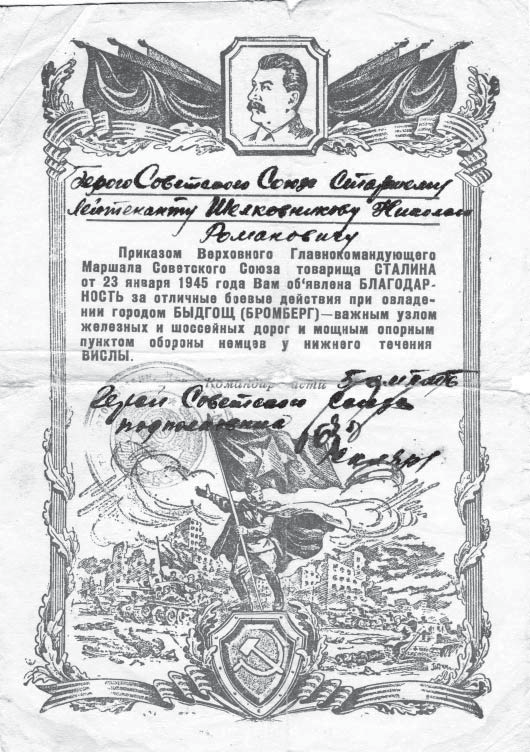 Герою Советского Союза Старшему
лейтенанту Шелковникову Николаю
Романовичу
Приказом Верховного Главнокомандующего
Маршала Советского Союза товарища СТАЛИНА
от 23 января 1945 года Вам об‘явлена БЛАГОДАР-
НОСТЬ за отличные боевые действия при овладе-
нии городом БЫДГОЩ (БРОМБЕРГ)—важным узлом
железных и шоссейных дорог и мощным опорным
пунктом обороны немцев у нижнего течения
ВИСЛЫ.
Командир части
Герой Советского Союза
подполковник